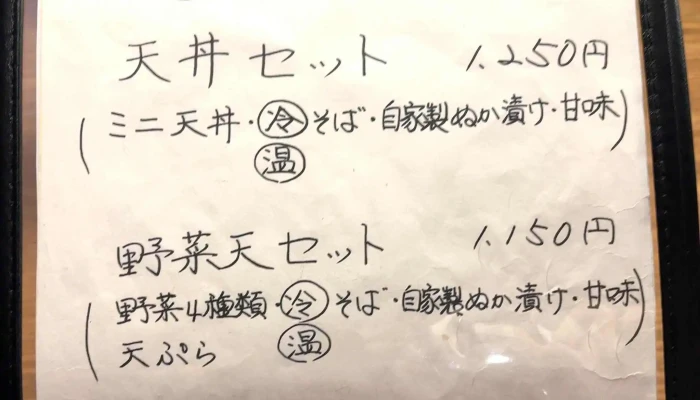 天丼セット 1,250円
(ミニ天丼・冷そば・自家製ぬか漬け・甘味)
温
野菜天セット 1,150円
(野菜4種類・冷そば・自家製ぬか漬け・甘味)
天ぷら 温